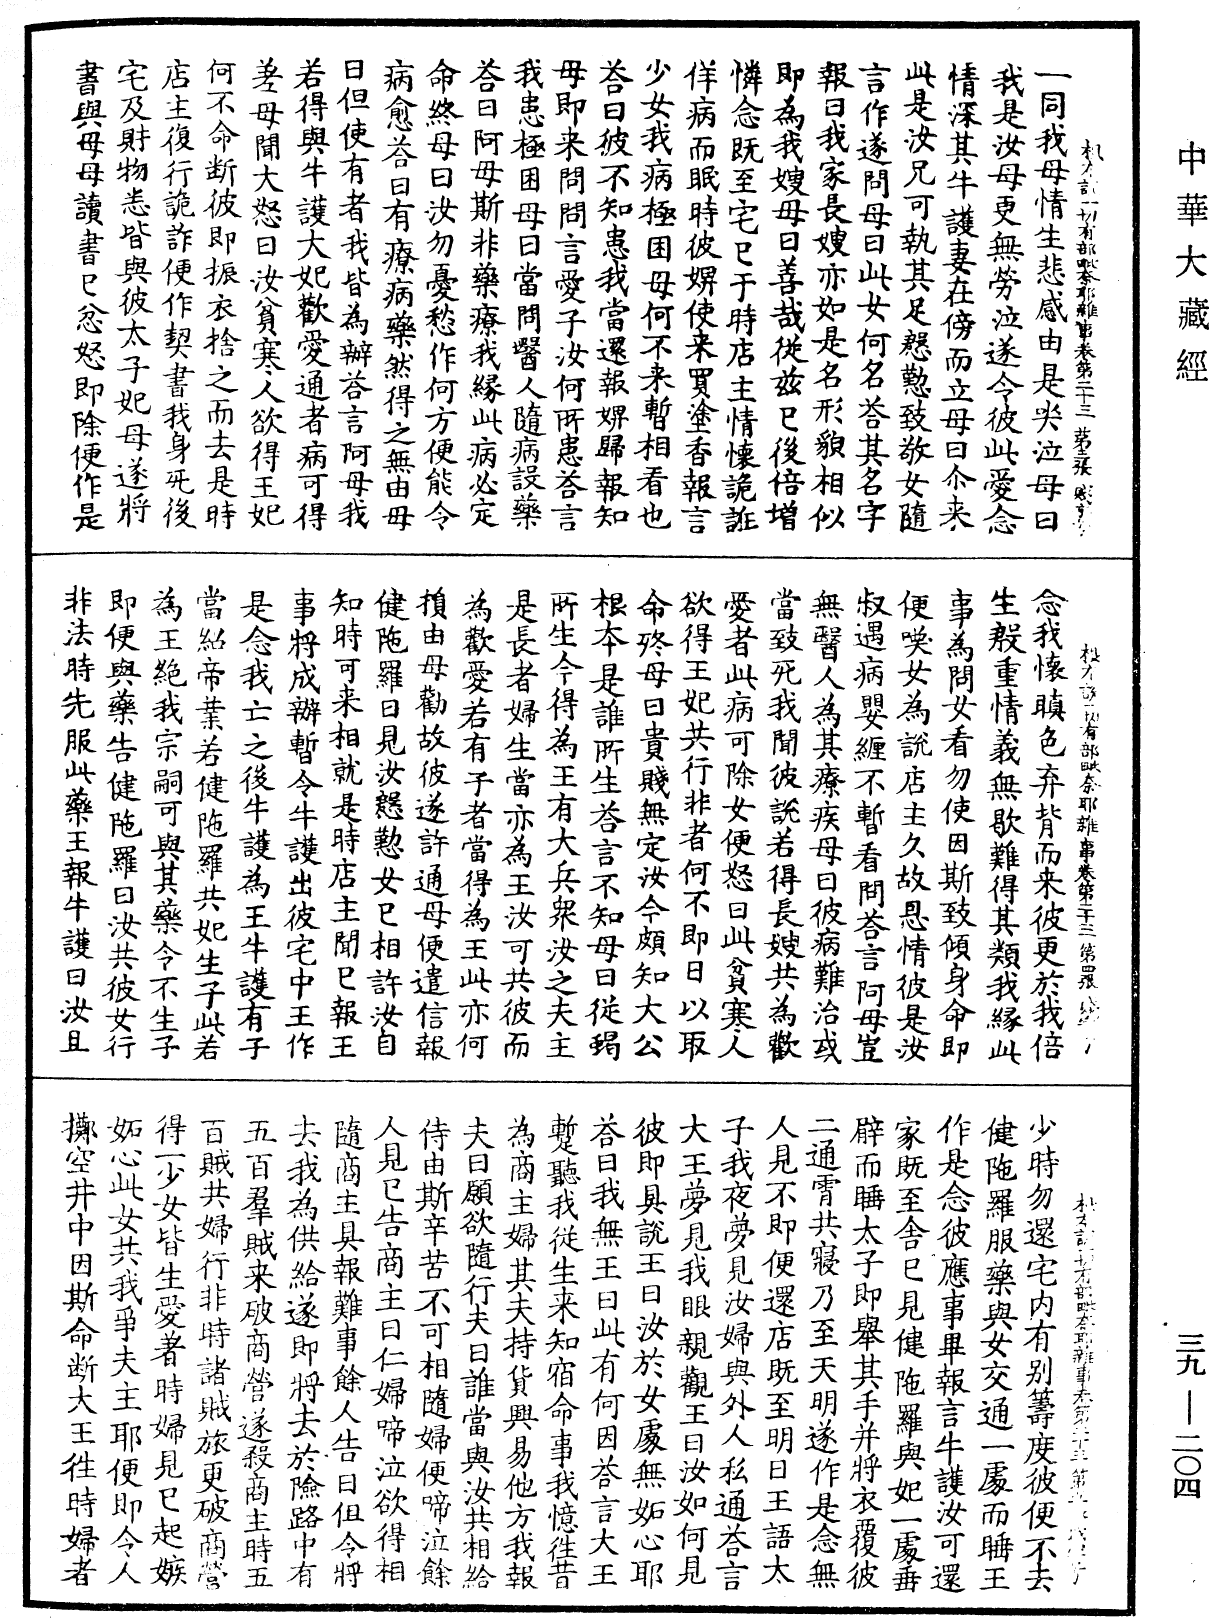 中華大藏經
根本說一切有部毗奈耶雜事卷第二十三 第三張
一同我母情生悲感由是哭泣母曰
我是汝母更無勞泣遂令彼此愛念
情深其牛護妻在傍而立母曰尒来
此是汝兄可執其足慇懃致敬女隨
言作遂問母曰此女何名荅其名字
報曰我家長嫂亦如是名形貌相似
即為我嫂母曰善哉從茲已後倍增
憐念既至宅已于時店主情懷詭誑
佯病而眠時彼娚使来買塗香報言
少女我病極困母何不来暫相看也
荅曰彼不知患我當還報娚歸報知
母即来問問言愛子汝何所患荅言
我患極困母曰當問醫人隨病設藥
荅曰阿母斯非藥療我緣此病必定
命終母曰汝勿憂愁作何方便能令
病愈荅曰有療病藥然得之無由母
曰但使有者我皆為辦荅言阿母我
若得與牛護大妃歡愛通者病可得
差母聞大怒曰汝貧寒人欲得王妃
何不命斷彼即振衣捨之而去是時
店主復行詭詐便作契書我身死後
宅及財物悉皆與彼太子妃母遂將
書與母母讀書已忿怒即除便作是
根本說一切有部毗奈耶雜事卷第二十三 第四張
念我懷瞋色弃背而来彼更於我倍
生殷重情義無歇難得其類我緣此
事為問女看勿使因斯致傾身命即
便喚女為說店主久故恩情彼是汝
叔遇病嬰纏不暫看問荅言阿母豈
無醫人為其療疾母曰彼病難治或
當致死我聞彼說若得長嫂共為歡
愛者此病可除女便怒曰此貧寒人
欲得王妃共行非者何不即日以取
命終母曰貴賤無定汝今頗知大公
根本是誰所生荅言不知母曰從蝎
所生今得為王有大兵眾汝之夫主
是長者婦生當亦為王汝可共彼而
為歡愛若有子者當得為王此亦何
損由母勸故彼遂許通母便遣信報
健陁羅曰見汝慇懃女已相許汝自
知時可来相就是時店主聞已報王
事將成辦暫令牛護出彼宅中王作
是念我亡之後牛護為王牛護有子
當紹帝業若健陁羅共妃生子此若
為王絕我宗嗣可與其藥令不生子
即便與藥告健陁羅曰汝共彼女行
非法時先服此藥王報牛護曰汝且
根本說一切有部毗奈耶雜事卷第二十三 第五張
少時勿還宅內有别籌度彼便不去
健陁羅服藥與女交通一處而睡王
作是念彼應事畢報言牛護汝可還
家既至舍已見健陁羅與妃一處垂
臂而睡太子即舉其手并將衣覆彼
二通霄共寢乃至天明遂作是念無
人見不即便還店既至明日王語太
子我夜夢見汝婦與外人私通荅言
大王夢見我眼親觀王曰汝如何見
彼即具說王曰汝於女處無妬心耶
荅曰我無王曰此有何因荅言大王
蹔聽我從生来知宿命事我憶徃昔
為商主婦其夫持貨興易他方我報
夫曰願欲隨行夫曰誰當與汝共相給
侍由斯辛苦不可相隨婦便啼泣餘
人見已告商主曰仁婦啼泣欲得相
隨商主具報難事餘人告曰但令將
去我為供給遂即將去於險路中有
五百羣賊来破商營遂殺商主時五
百賊共婦行非時諸賊旅更破商營
得一少女皆生愛著時婦見已起嫉
妬心此女共我爭夫主耶便即令人
擲空井中因斯命断大王徃時婦者
三九—二〇四